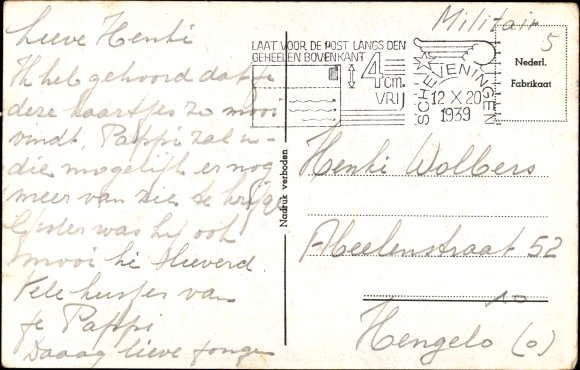 Lieve Henki
Ik heb gehoord dat je
deze kaartjes zo mooi
vindt. Pappi zal in-
dien mogelijk er nog
meer van zie te krijgen
was hij ook
mooi hè lieverd.
Vele kusjes van
je Pappi
Daaag lieve jongen
Militair
5
LAAT VOOR DE POST LANGS DEN
GEHEELEN BOVENKANT
4 cm.
VRIJ
SCHEVENINGEN
12 X 20
1939
Nederl.
Fabrikaat
Nadruk verboden
Henki Wolbers
Abeelenstraat 52
10
Hengelo (o)